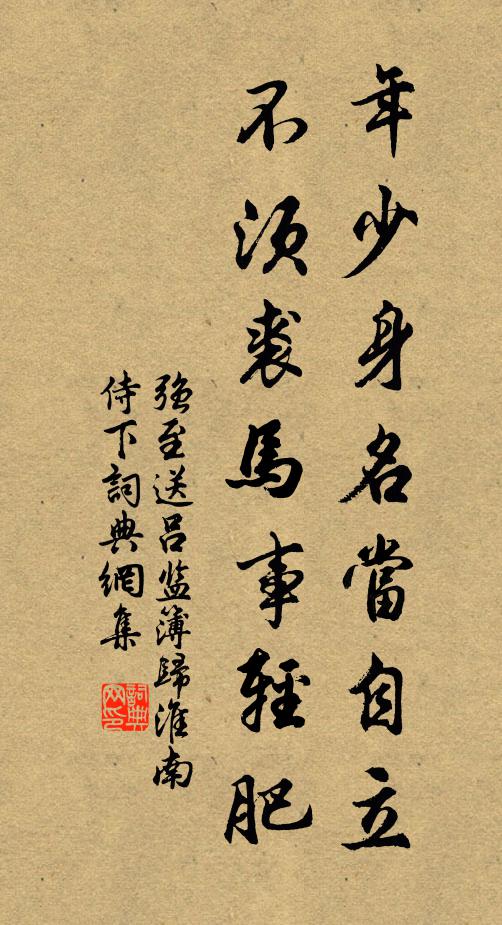 年少身名當自立
不須裘馬事輕肥
強至送呂监簿歸淮南
侍下詞典網集
詞典网印